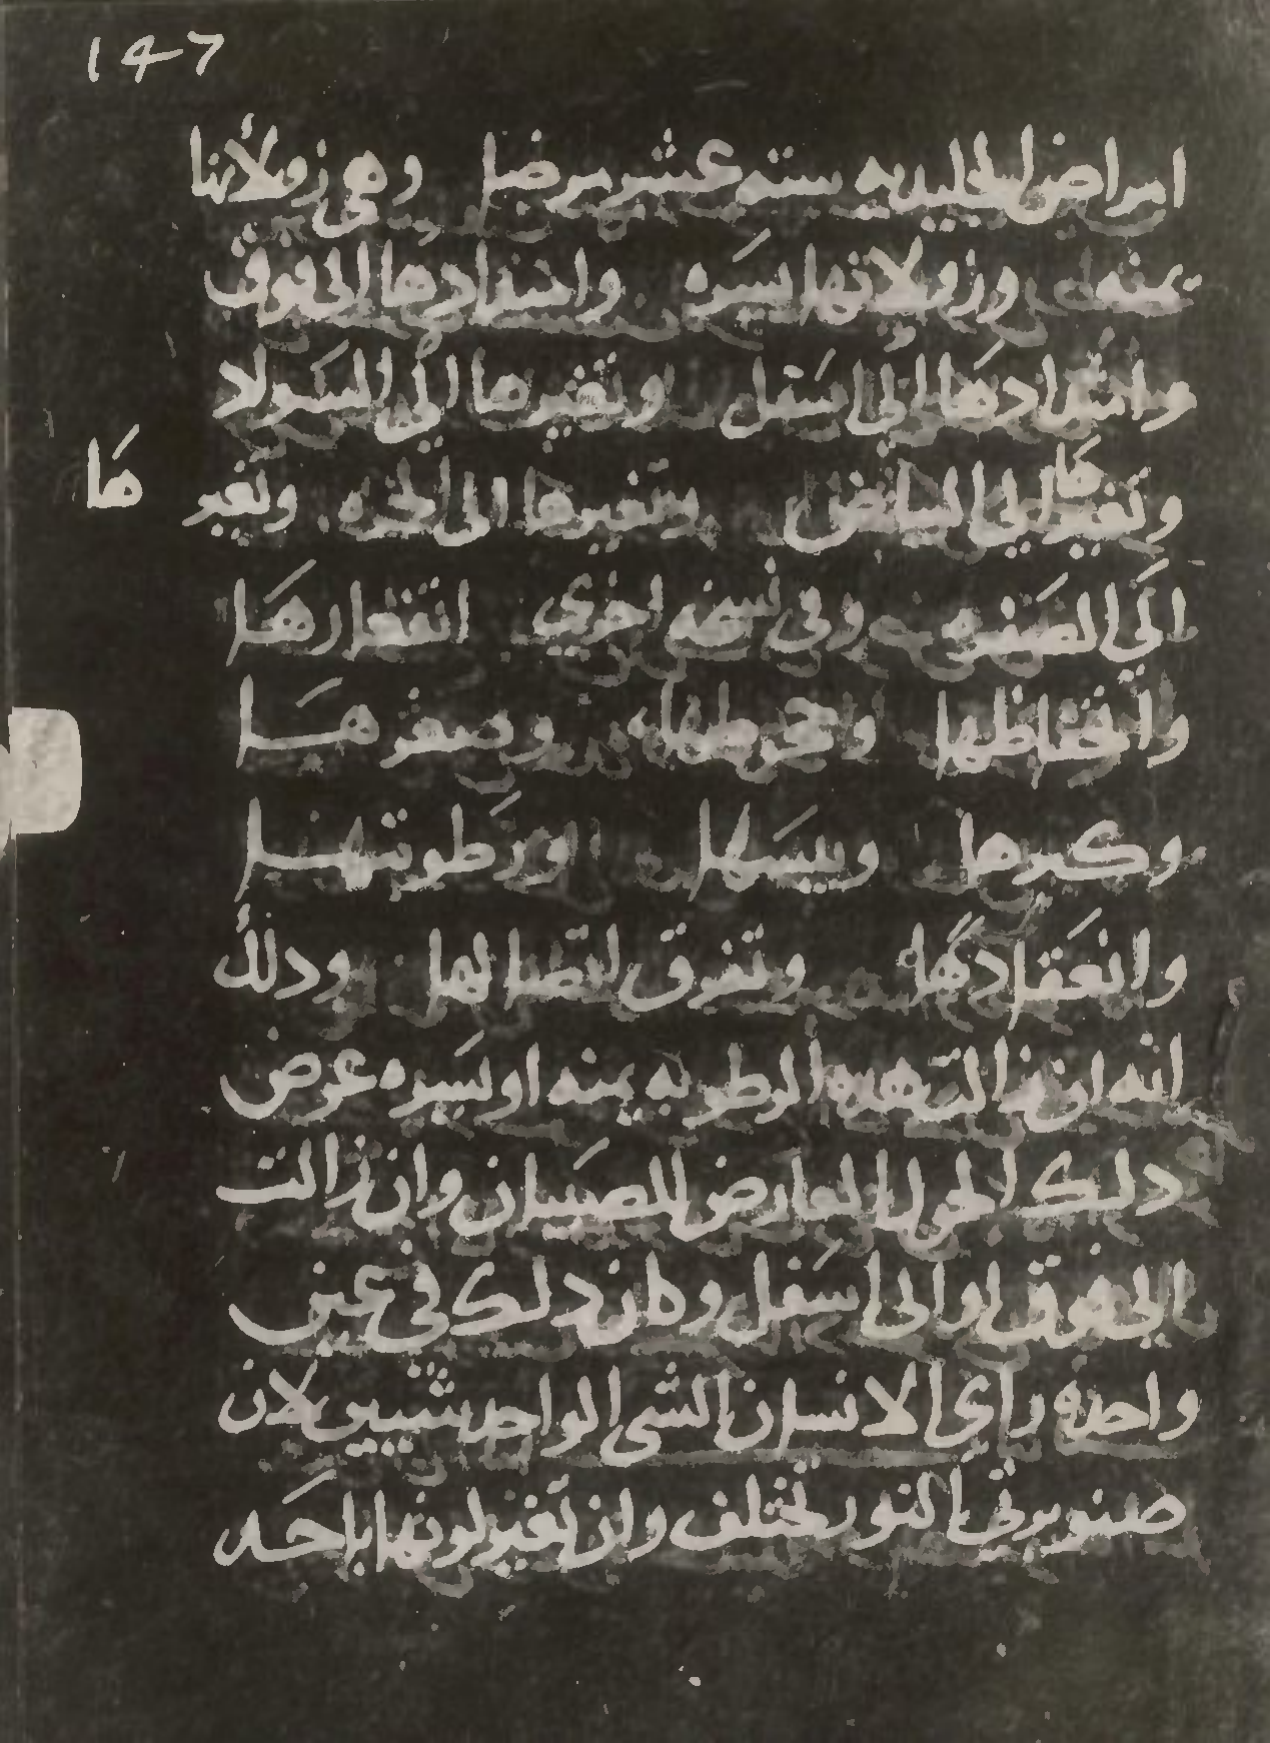 147
امراض الجليديه سته عشر مرضا وهي زولانها
يمنه وزولانها يسره وامتدادها الى فوق
وامتدادها الى اسفل وتغيرها الى السواد
وتغيرها الى البياض وتغيرها الى الحمره وتغير ها
الى الصفره وفي نسخه اخري انتظارها
وانخفاظها وجحوظها وصغرها
وكبرها ويبسها ورطوبتها
وانعقادها وتفرق اتصالها ودلك
انه ان زالت هده الرطوبه يمنه او يسره عرض
دلك الحول العارض للصبيان وان زالت
الى فوق او الى اسفل وكان دلك في عين
واحده رأي الانسان الشي الواحد شيين لان
صنوبرتي النور تختلف وان تغير لونها باحد